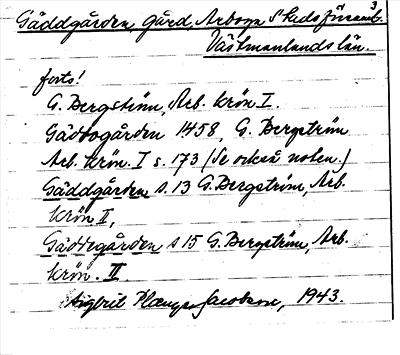 3
Gäddgården, gård, Arboga Stadsförsaml.
Västmanlands län.
forts!
G. Bergström, Arb. krön I.
Gäddogården 1458, G. Bergström
Arb. krön. I s. 173 (Se också noten.)
Gäddgården s. 13 G. Bergström, Arb.
krön II,
Gäddegården s 15 G. Bergström, Arb.
krön. II.
Sigbrit Plænge Jacobson, 1943.